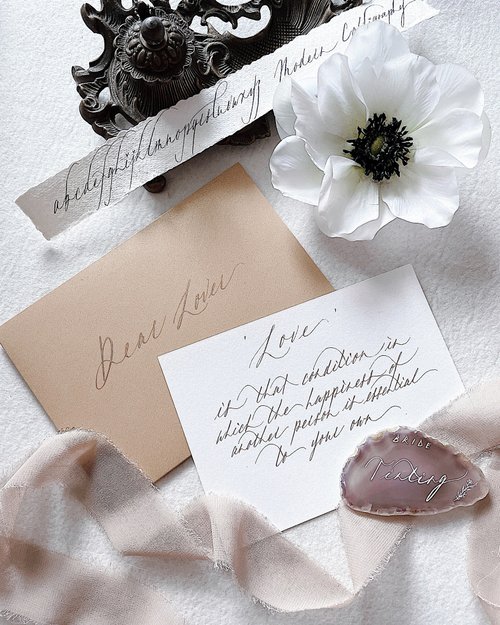 abcdefghijklmnopqrstuvwxyz Modern Calligraphy
Dear Lover
'Love'
is that condition in
which the happiness of
another person is essential
to your own
BRIDE